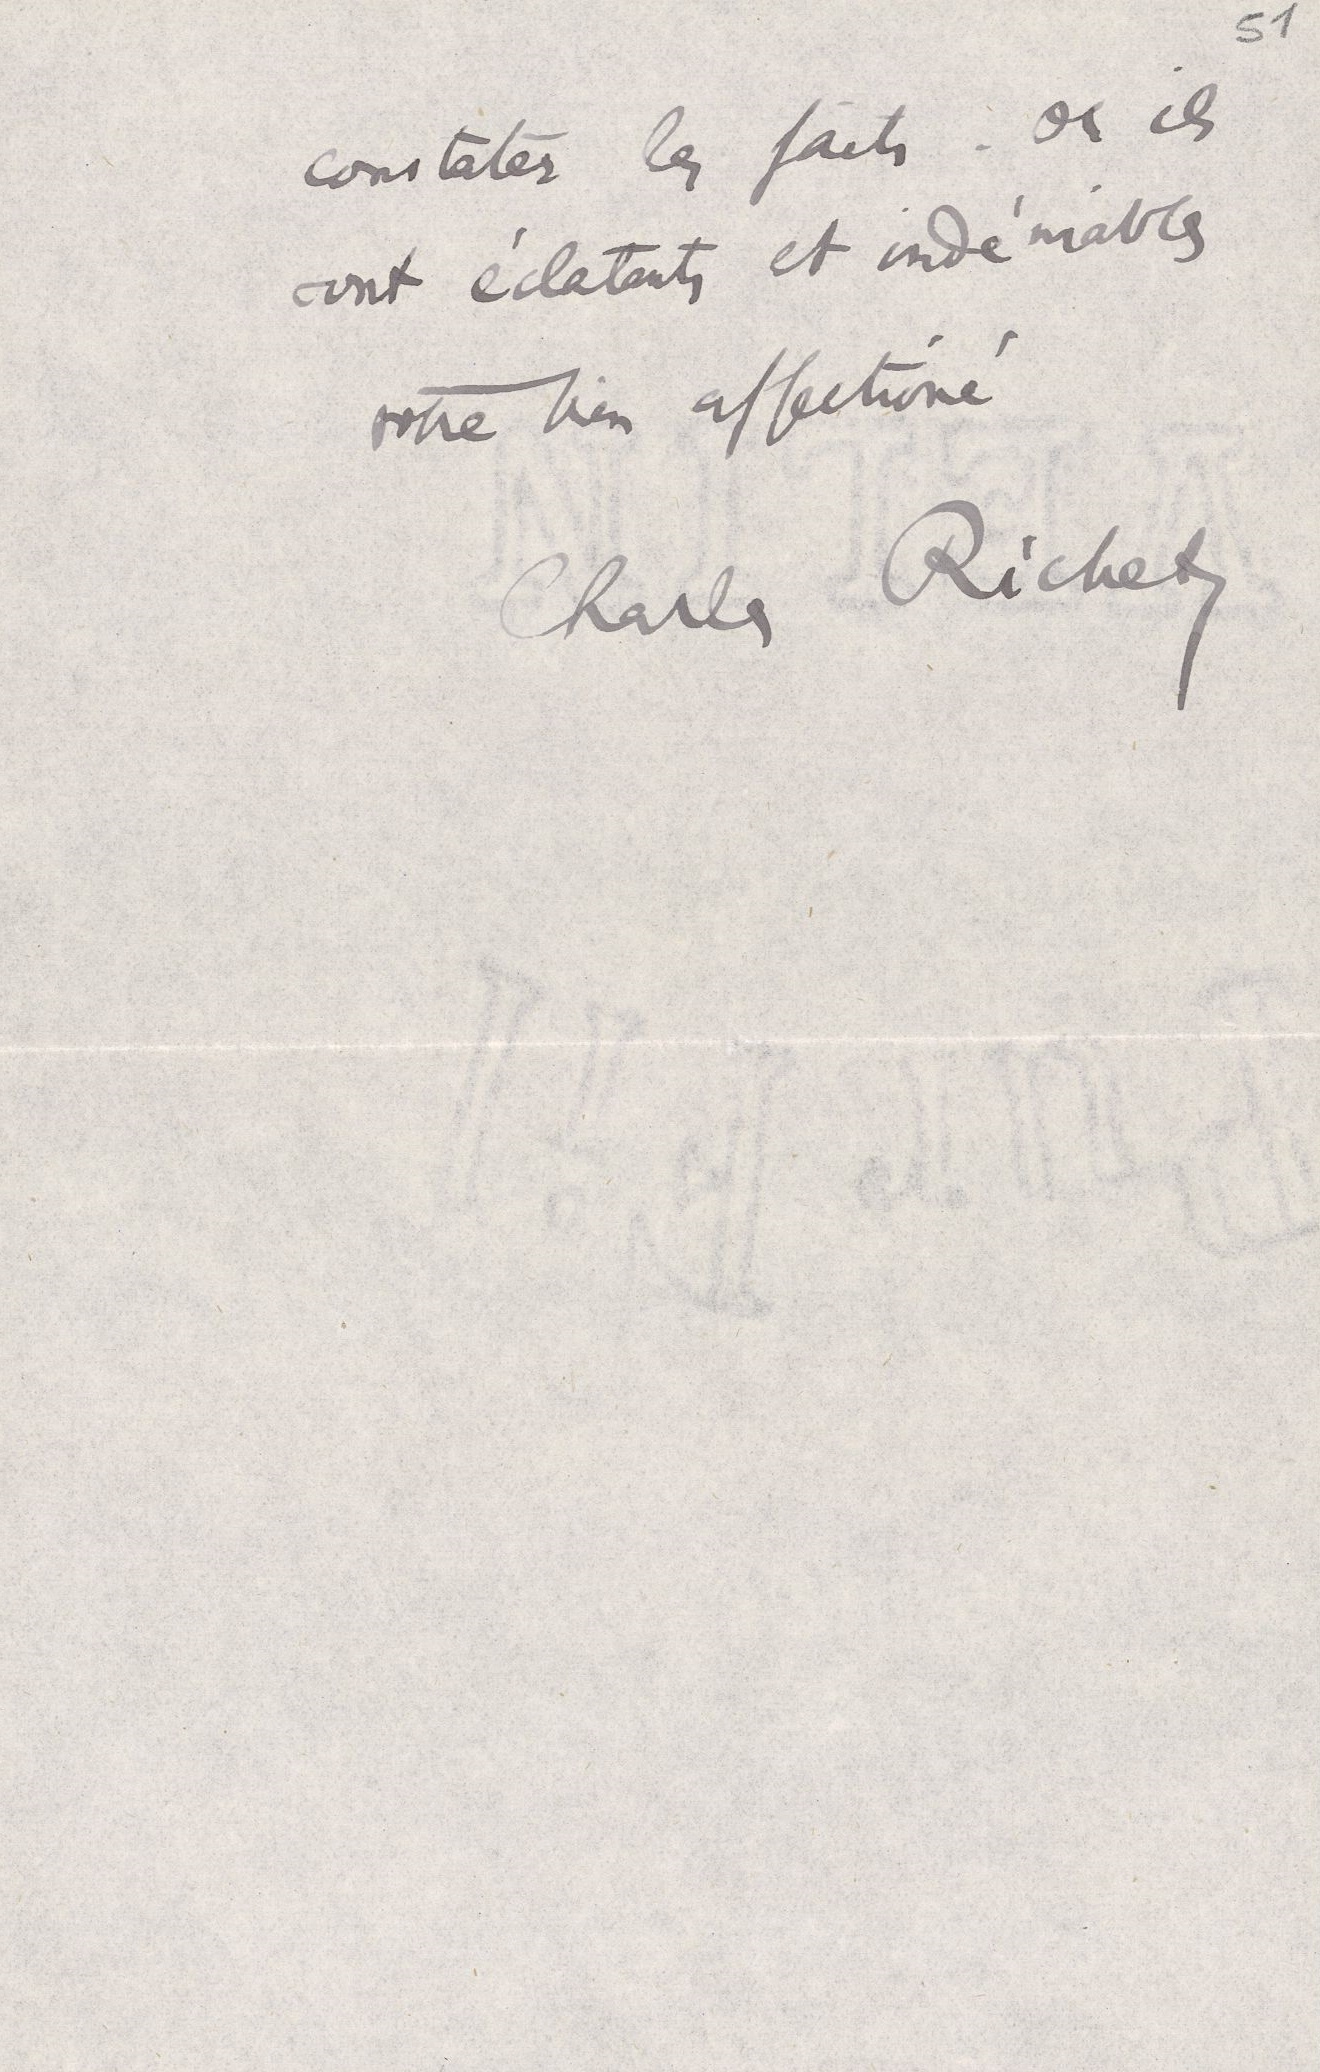 51
constater les faits. Or ils
sont éclatants et indéniables
votre bien affectioné
Charles Richet